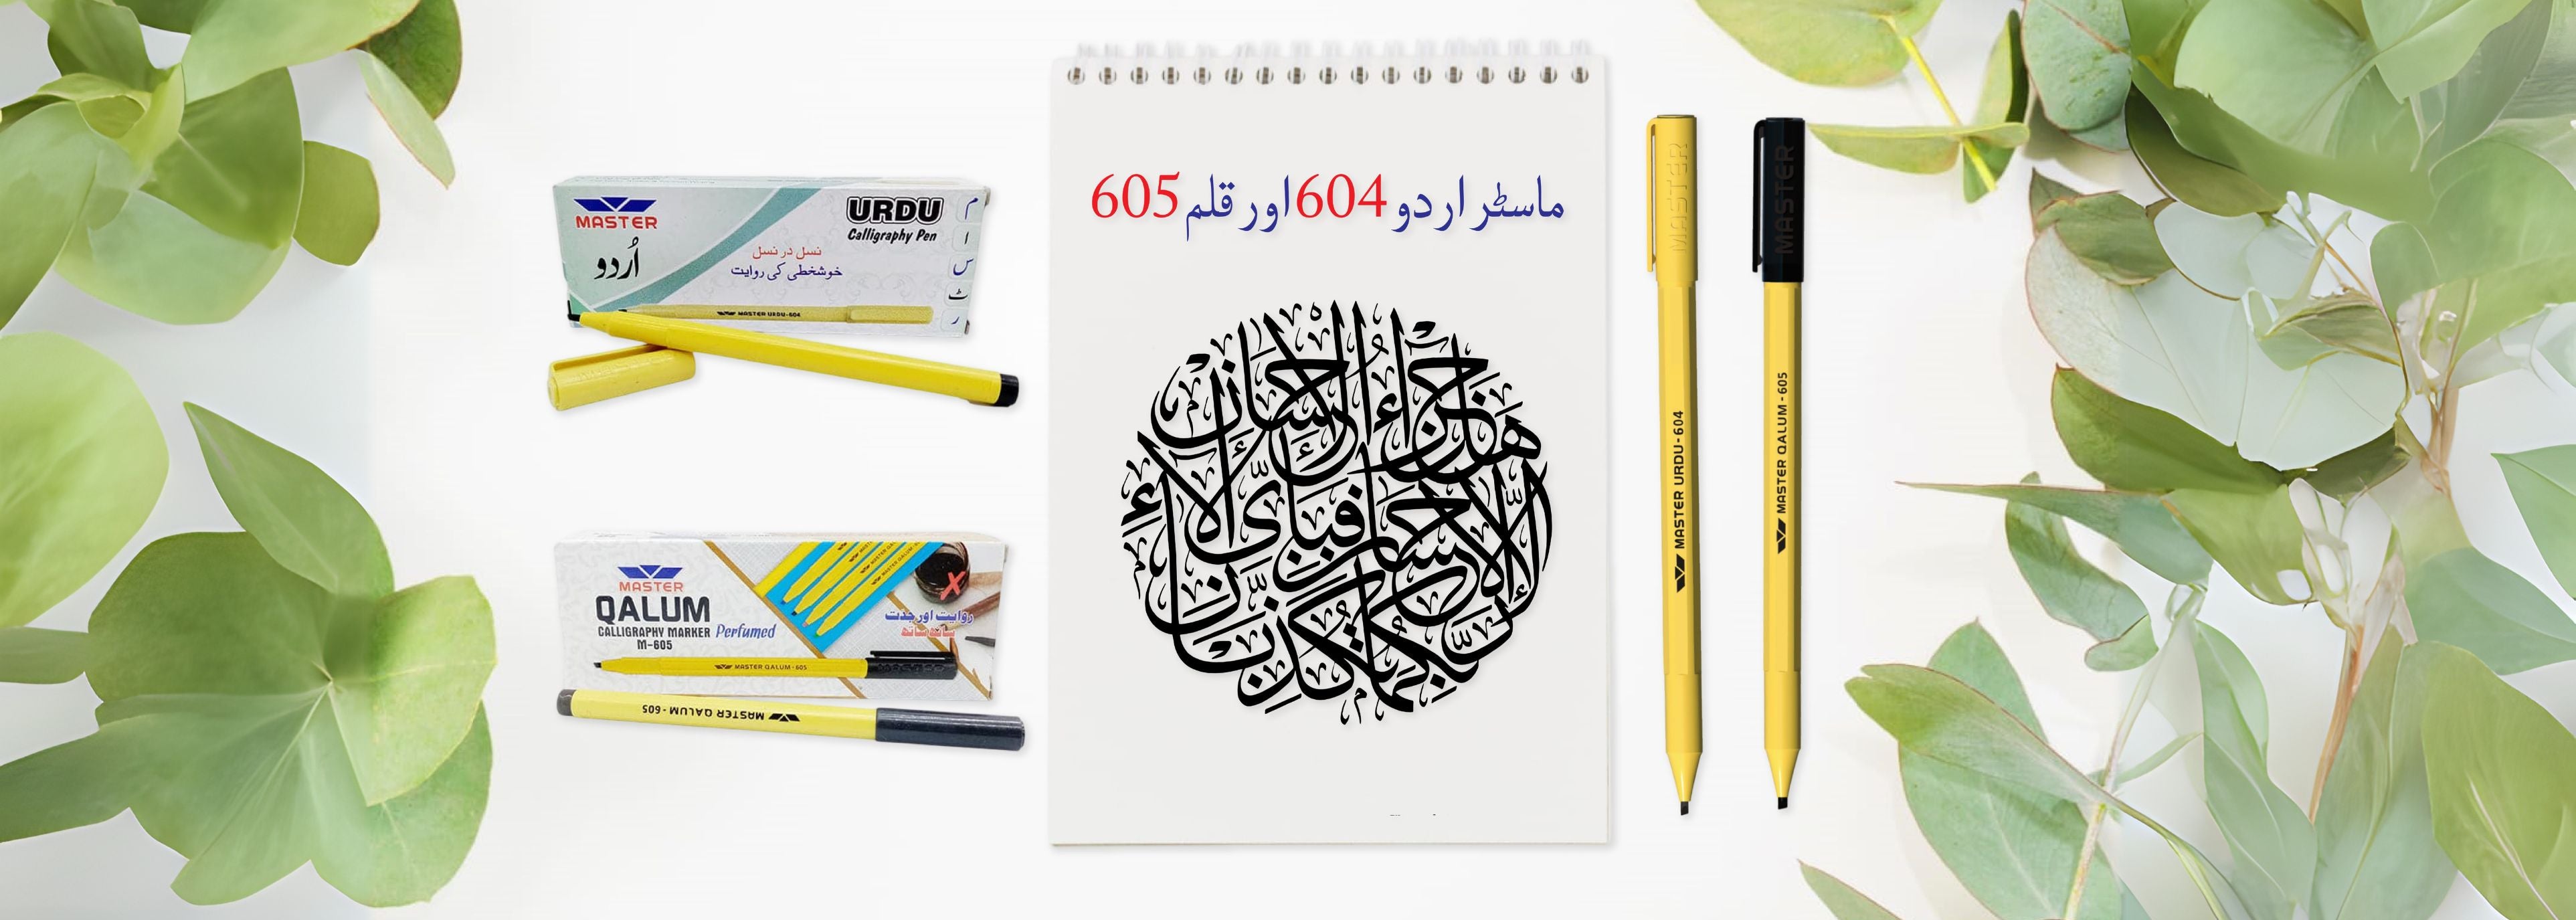 MASTER
URDU
Calligraphy Pen
اُردو
نسل در نسل
خوشخطی کی روایت
م
ا
س
ٹ
ر
MASTER URDU-604
MASTER
QALUM
CALLIGRAPHY MARKER Perfumed
M-605
روایت اور جدت
MASTER QALUM-605
MASTER
MASTER QALUM-605
ماسٹر اردو 604 اور قلم 605
هل جزاء الإحسان
إلا الإحسان فبأي آلاء
ربكما تكذبان
MASTER
MASTER URDU-604
MASTER
MASTER QALUM-605